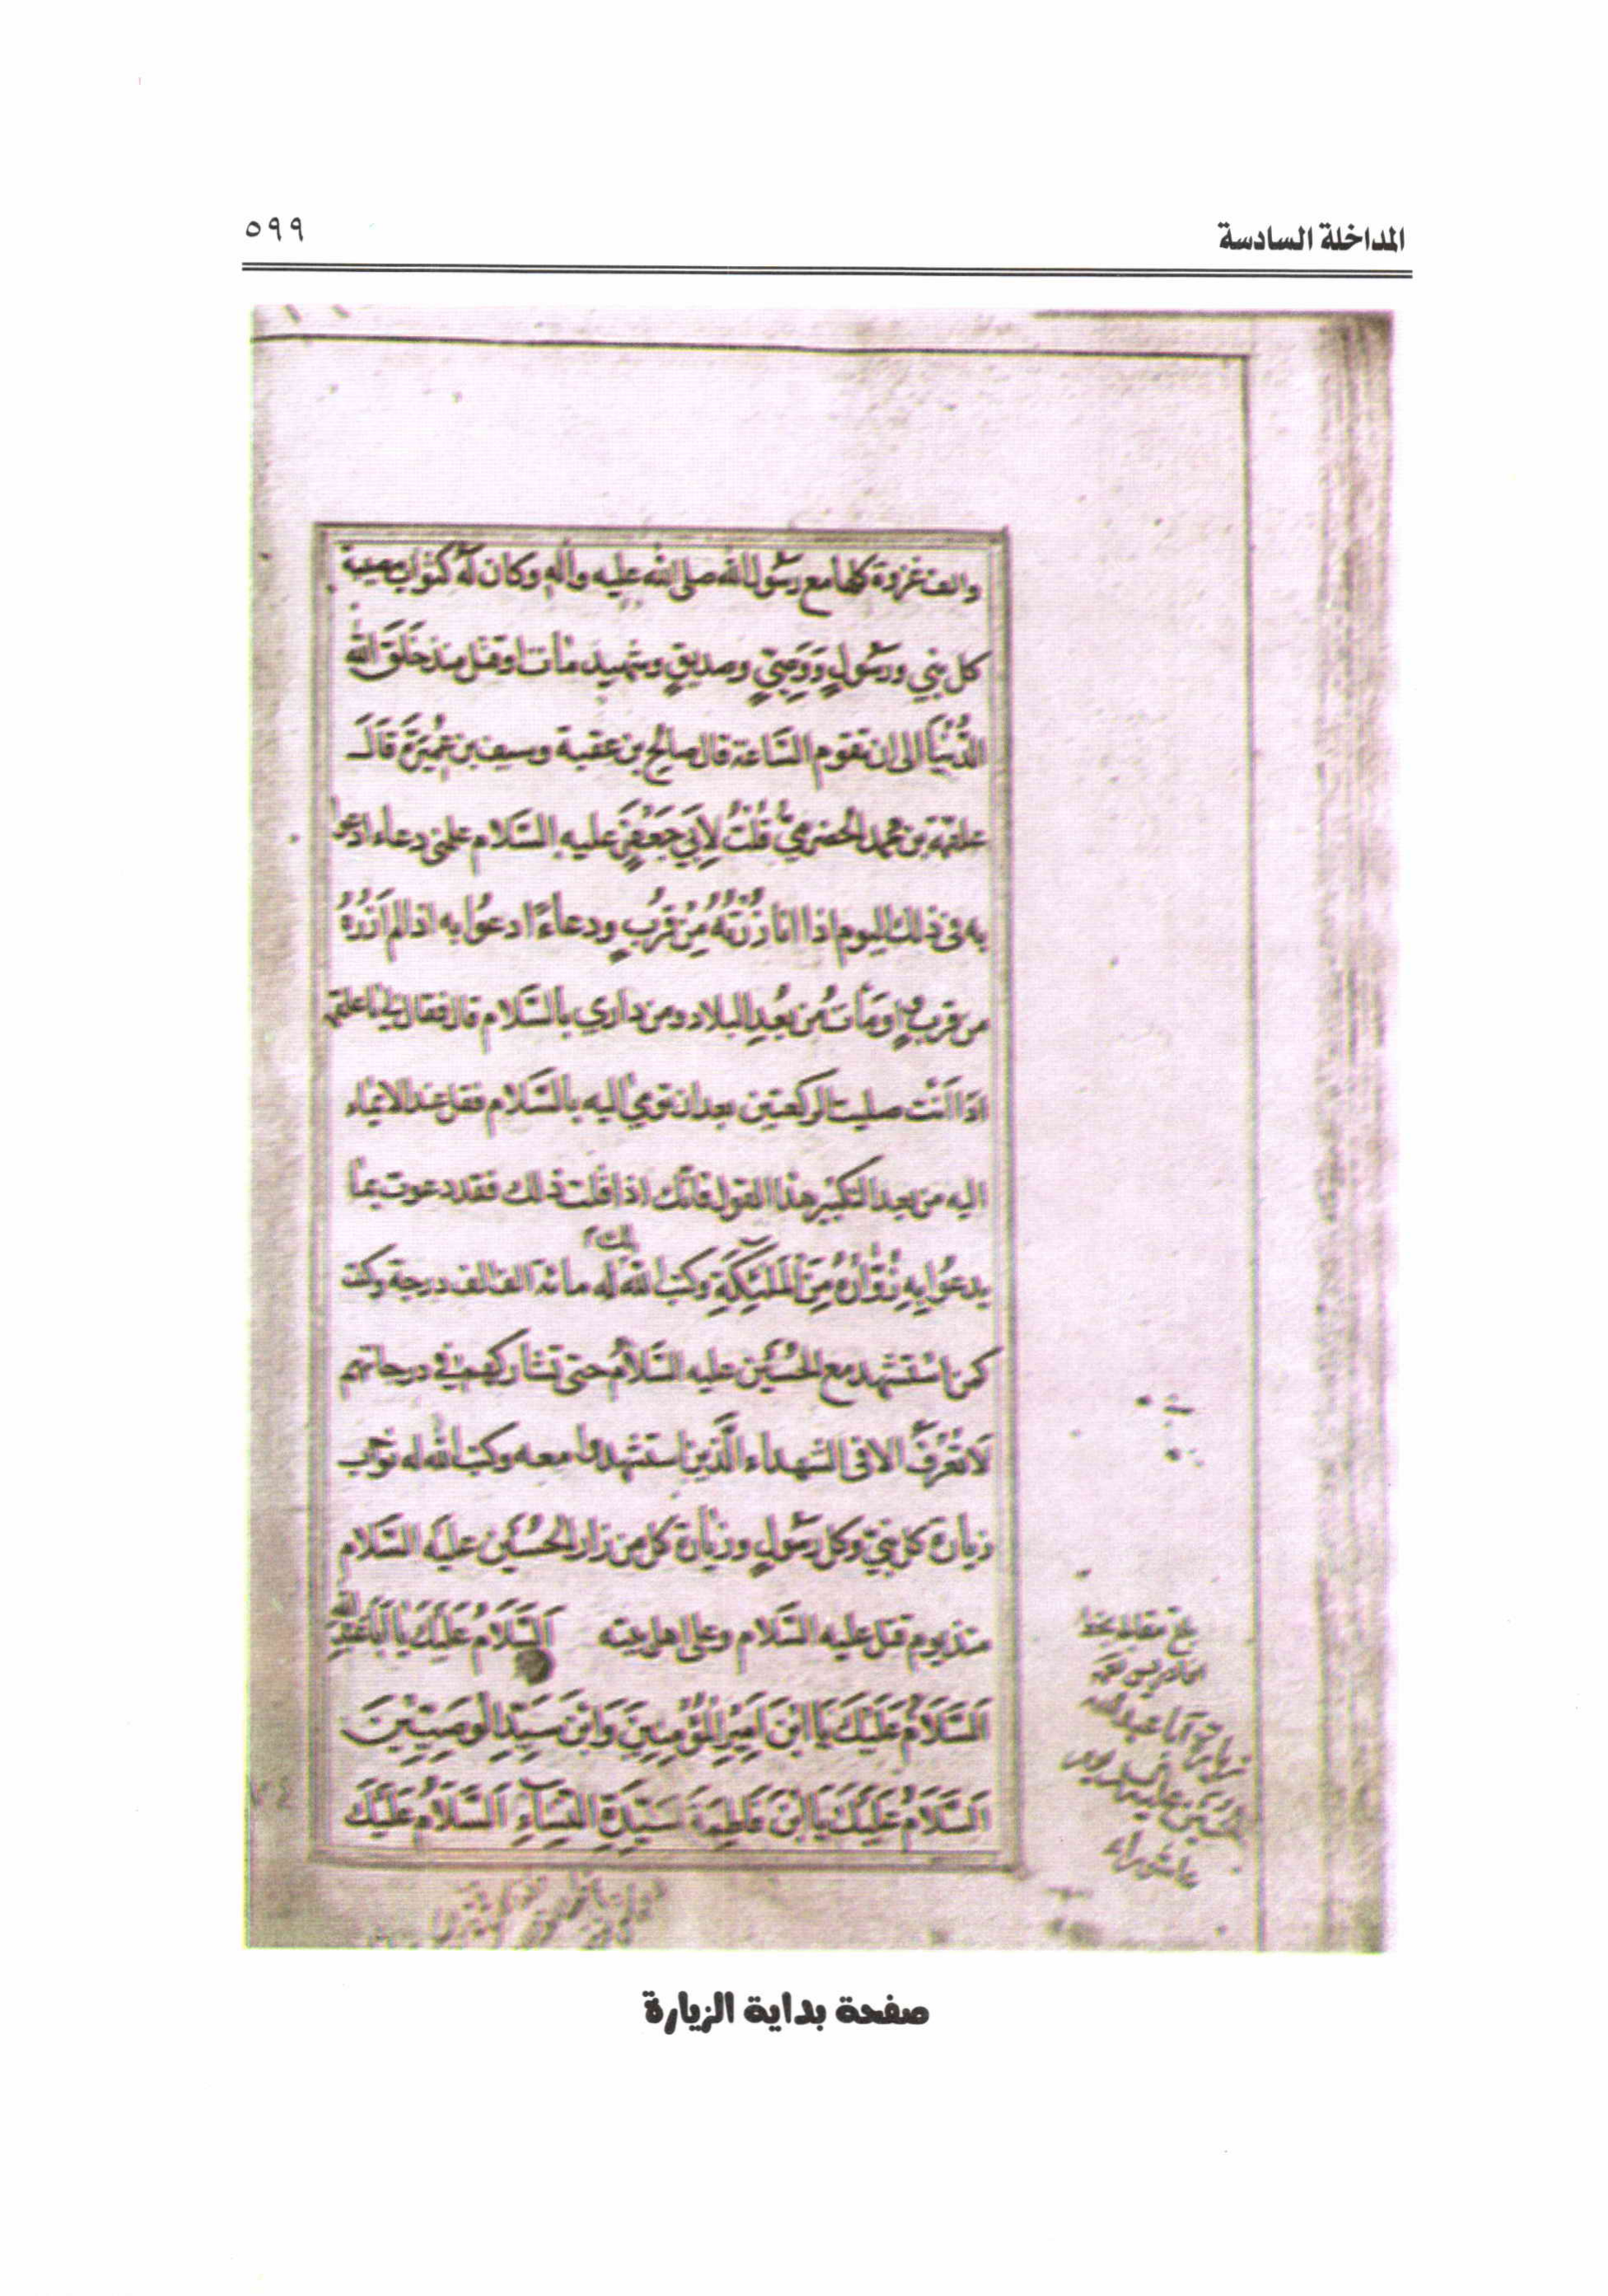 المداخلة السادسة
٥٩٩
والف غزوة كلها مع رسول الله صلى الله عليه وآله وكان له كثواب مصيبة
كل نبي ورسولٍ وَوَصِيٍّ وصديقٍ وشهيد مات او قتل منذ خَلَقَ الله
الدُّنْيَا الى ان تقوم السَّاعة قال صالح بن عقبة وسيف بن عَمِيرَةَ قَالَ
علقمة بن محمد الحضرميُّ قُلْتُ لِأَبِي جَعْفَرٍ عليه السَّلام علمني دعاء ادعوا
به في ذلك اليوم اذا انا زُرْتُهُ مِنْ قُرْبٍ ودعاءً ادعُوا به اذا لم اَزُرْهُ
من قربٍ واومَأتُ مِن بُعْدِ البلاد ومن داري بالسَّلام قال فقال لي يا علقمة
اذا اَنْتَ صليت الركعتين بعد ان تومي اليه بالسَّلام فقل عند الايماء
اليه من بعد التكبير هذا القول فانّك اذا قلت ذلك فقد دعوت بما
يدعُوا بِهِ زُوَّارُهُ مِنَ الْمَلٰئِكَةِ وكتب الله له مائة الف الف درجة وكنت
كمن اسْتشهد مع الحُسَيْن عليه السَّلامُ حتى تشاركهم في درجاتهم
لَا تُعْرَفُ الا في الشهداء الَّذين استشهدوا معه وكتب الله له ثواب
زيارة كل نبيّ وكل رسُولٍ وزيارة كل من زار الحُسَيْن عليه السَّلام
منذ يوم قتل عليه السَّلام وعلى اهل بيته اَلسَّلَامُ عَلَيْكَ يَا اَبَا عَبْدِ اللهِ
اَلسَّلَامُ عَلَيْكَ يَا ابْنَ اَمِيرِ الْمُؤْمِنِينَ وَابْنَ سَيِّدِ الْوَصِيِّينَ
اَلسَّلَامُ عَلَيْكَ يَا ابْنَ فَاطِمَةَ سَيِّدَةِ النِّسَاءِ اَلسَّلَامُ عَلَيْكَ
بلغ مقابلة بخط
زيارة ابا عبد الله
الحسين عليه السلام يوم
عاشوراء
صفحة بداية الزيارة